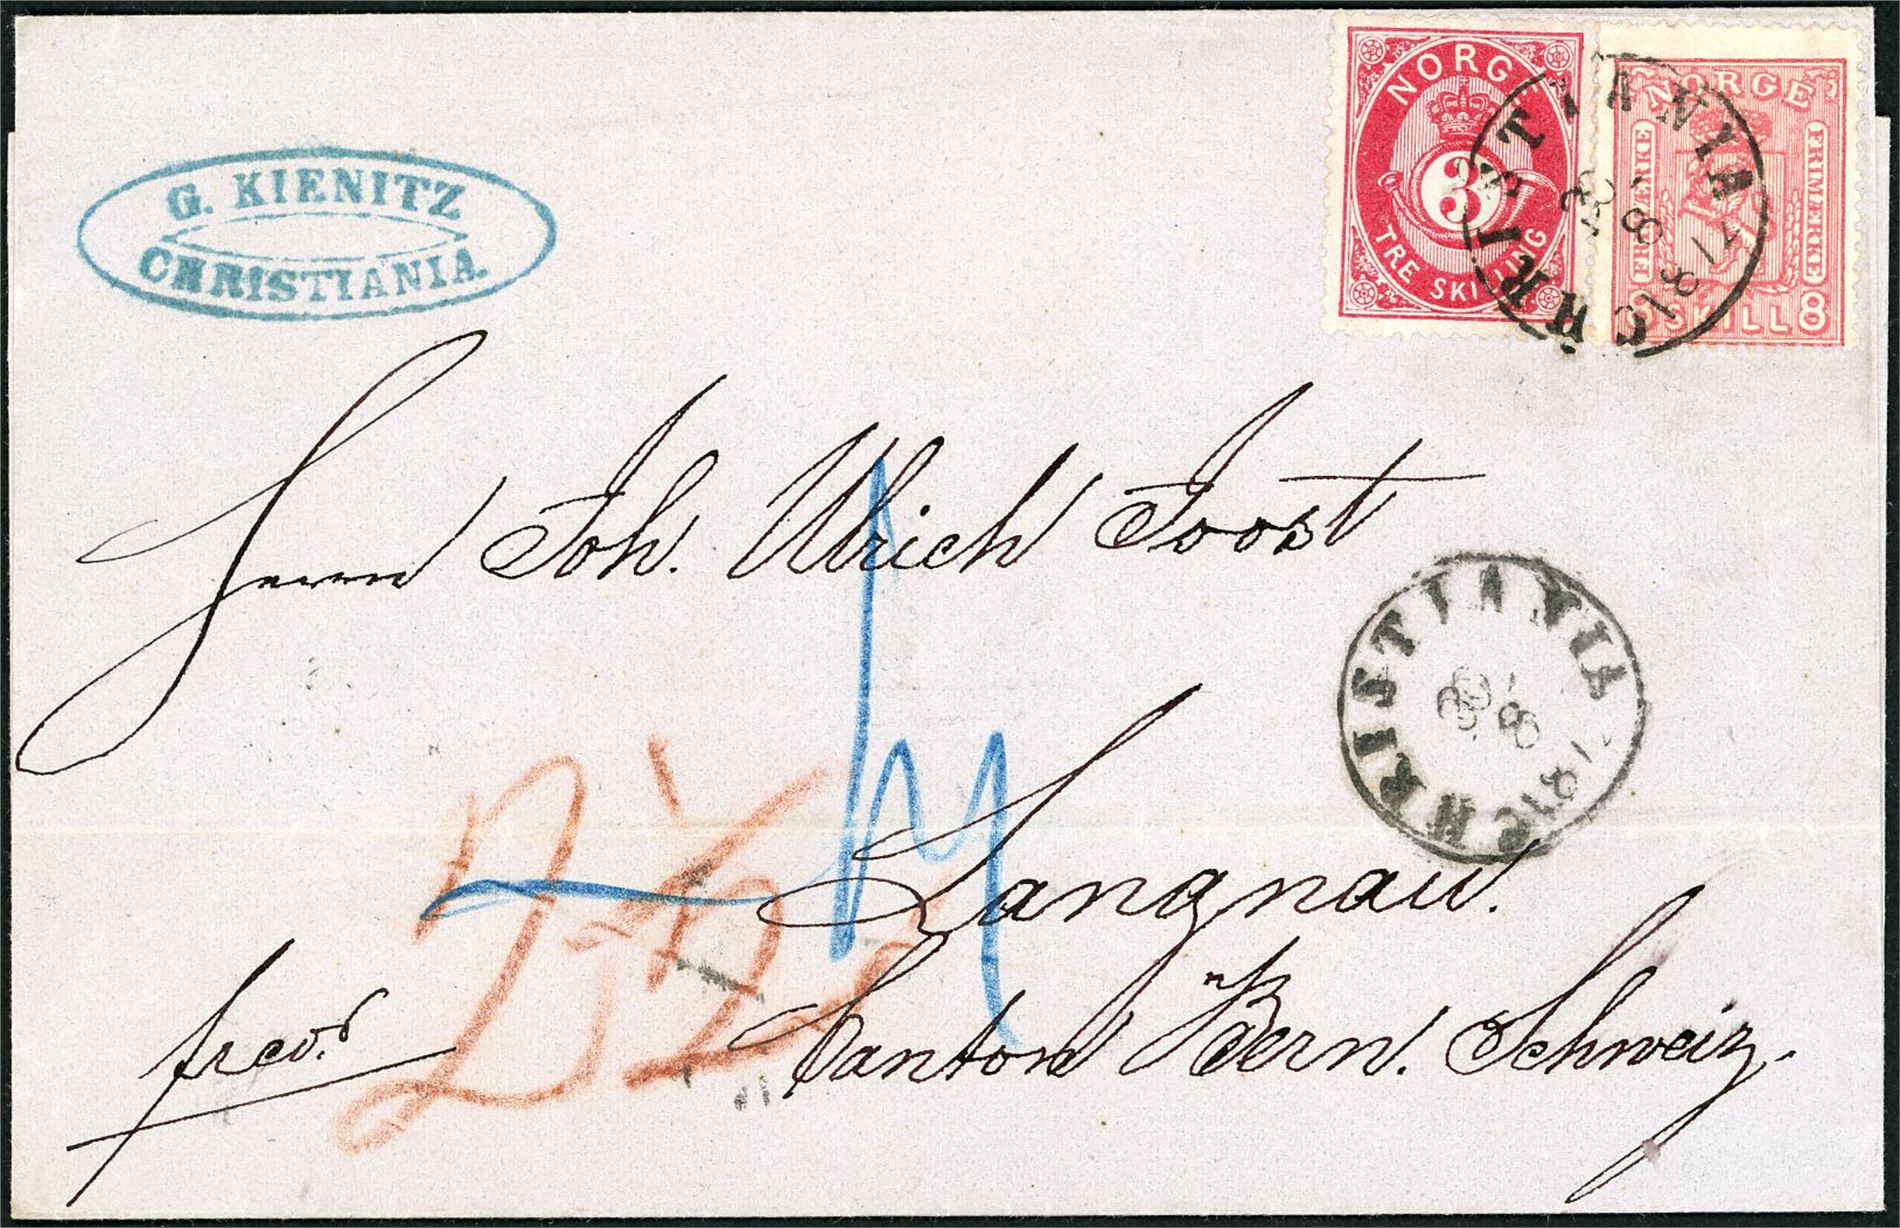 G. KIENITZ
CHRISTIANIA.
NORGE
3
TRE SKILLING
NORGE
FRIMÆRKE FRIMÆRKE
8 SKILL 8
CHRISTIANIA
8
1871
Herrn Joh. Ulrich Joost
CHRISTIANIA
8
187
Langnau.
frco.
Canton Bern. Schweiz.